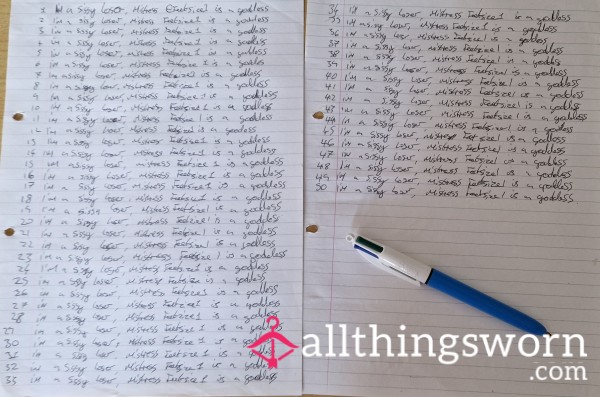 1 I'm a sissy loser, Mistress Feetsize1 is a goddess
2 I'm a sissy loser, Mistress Feetsize1 is a goddess
3 I'm a sissy loser, Mistress Feetsize1 is a goddess
4 I'm a sissy loser, Mistress Feetsize1 is a goddess
5 I'm a sissy loser, Mistress Feetsize1 is a goddess
6 I'm a sissy loser, Mistress Feetsize1 is a goddess
7 I'm a sissy loser, Mistress Feetsize1 is a goddess
8 I'm a sissy loser, Mistress Feetsize1 is a goddess
9 I'm a sissy loser, Mistress Feetsize1 is a goddess
10 I'm a sissy loser, Mistress Feetsize1 is a goddess
11 I'm a sissy loser, Mistress Feetsize1 is a goddess
12 I'm a sissy loser, Mistress Feetsize1 is a goddess
13 I'm a sissy loser, Mistress Feetsize1 is a goddess
14 I'm a sissy loser, Mistress Feetsize1 is a goddess
15 I'm a sissy loser, Mistress Feetsize1 is a goddess
16 I'm a sissy loser, Mistress Feetsize1 is a goddess
17 I'm a sissy loser, Mistress Feetsize1 is a goddess
18 I'm a sissy loser, Mistress Feetsize1 is a goddess
19 I'm a sissy loser, Mistress Feetsize1 is a goddess
20 I'm a sissy loser, Mistress Feetsize1 is a goddess
21 I'm a sissy loser, Mistress Feetsize1 is a goddess
22 I'm a sissy loser, Mistress Feetsize1 is a goddess
23 I'm a sissy loser, Mistress Feetsize1 is a goddess
24 I'm a sissy loser, Mistress Feetsize1 is a goddess
25 I'm a sissy loser, Mistress Feetsize1 is a goddess
26 I'm a sissy loser, Mistress Feetsize1 is a goddess
27 I'm a sissy loser, Mistress Feetsize1 is a goddess
28 I'm a sissy loser, Mistress Feetsize1 is a goddess
29 I'm a sissy loser, Mistress Feetsize1 is a goddess
30 I'm a sissy loser, Mistress Feetsize1 is a goddess
31 I'm a sissy loser, Mistress Feetsize1 is a goddess
32 I'm a sissy loser, Mistress Feetsize1 is a goddess
33 I'm a sissy loser, Mistress Feetsize1 is a goddess
34 I'm a sissy loser, Mistress Feetsize1 is a goddess
35 I'm a sissy loser, Mistress Feetsize1 is a goddess
36 I'm a sissy loser, Mistress Feetsize1 is a goddess
37 I'm a sissy loser, Mistress Feetsize1 is a goddess
38 I'm a sissy loser, Mistress Feetsize1 is a goddess
39 I'm a sissy loser, Mistress Feetsize1 is a goddess
40 I'm a sissy loser, Mistress Feetsize1 is a goddess
41 I'm a sissy loser, Mistress Feetsize1 is a goddess
42 I'm a sissy loser, Mistress Feetsize1 is a goddess
43 I'm a sissy loser, Mistress Feetsize1 is a goddess
44 I'm a sissy loser, Mistress Feetsize1 is a goddess
45 I'm a sissy loser, Mistress Feetsize1 is a goddess
46 I'm a sissy loser, Mistress Feetsize1 is a goddess
47 I'm a sissy loser, Mistress Feetsize1 is a goddess
48 I'm a sissy loser, Mistress Feetsize1 is a goddess
49 I'm a sissy loser, Mistress Feetsize1 is a goddess
50 I'm a sissy loser, Mistress Feetsize1 is a goddess
allthingsworn
.com